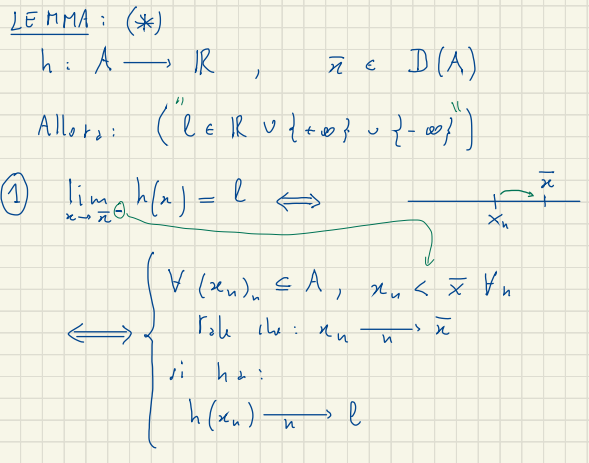 LEMMA : (*)
h : A ⟶ ℝ , x̄ ∈ D(A)
Allora : ( " l ∈ ℝ ∪ {+∞} ∪ {-∞} " )
① lim_{x→x̄⁻} h(x) = l ⟺
x̄
xₙ
⟺ { ∀ (xₙ)ₙ ⊆ A , xₙ < x̄ ∀n
tale che : xₙ ⟶ₙ x̄
si ha :
h(xₙ) ⟶ₙ l